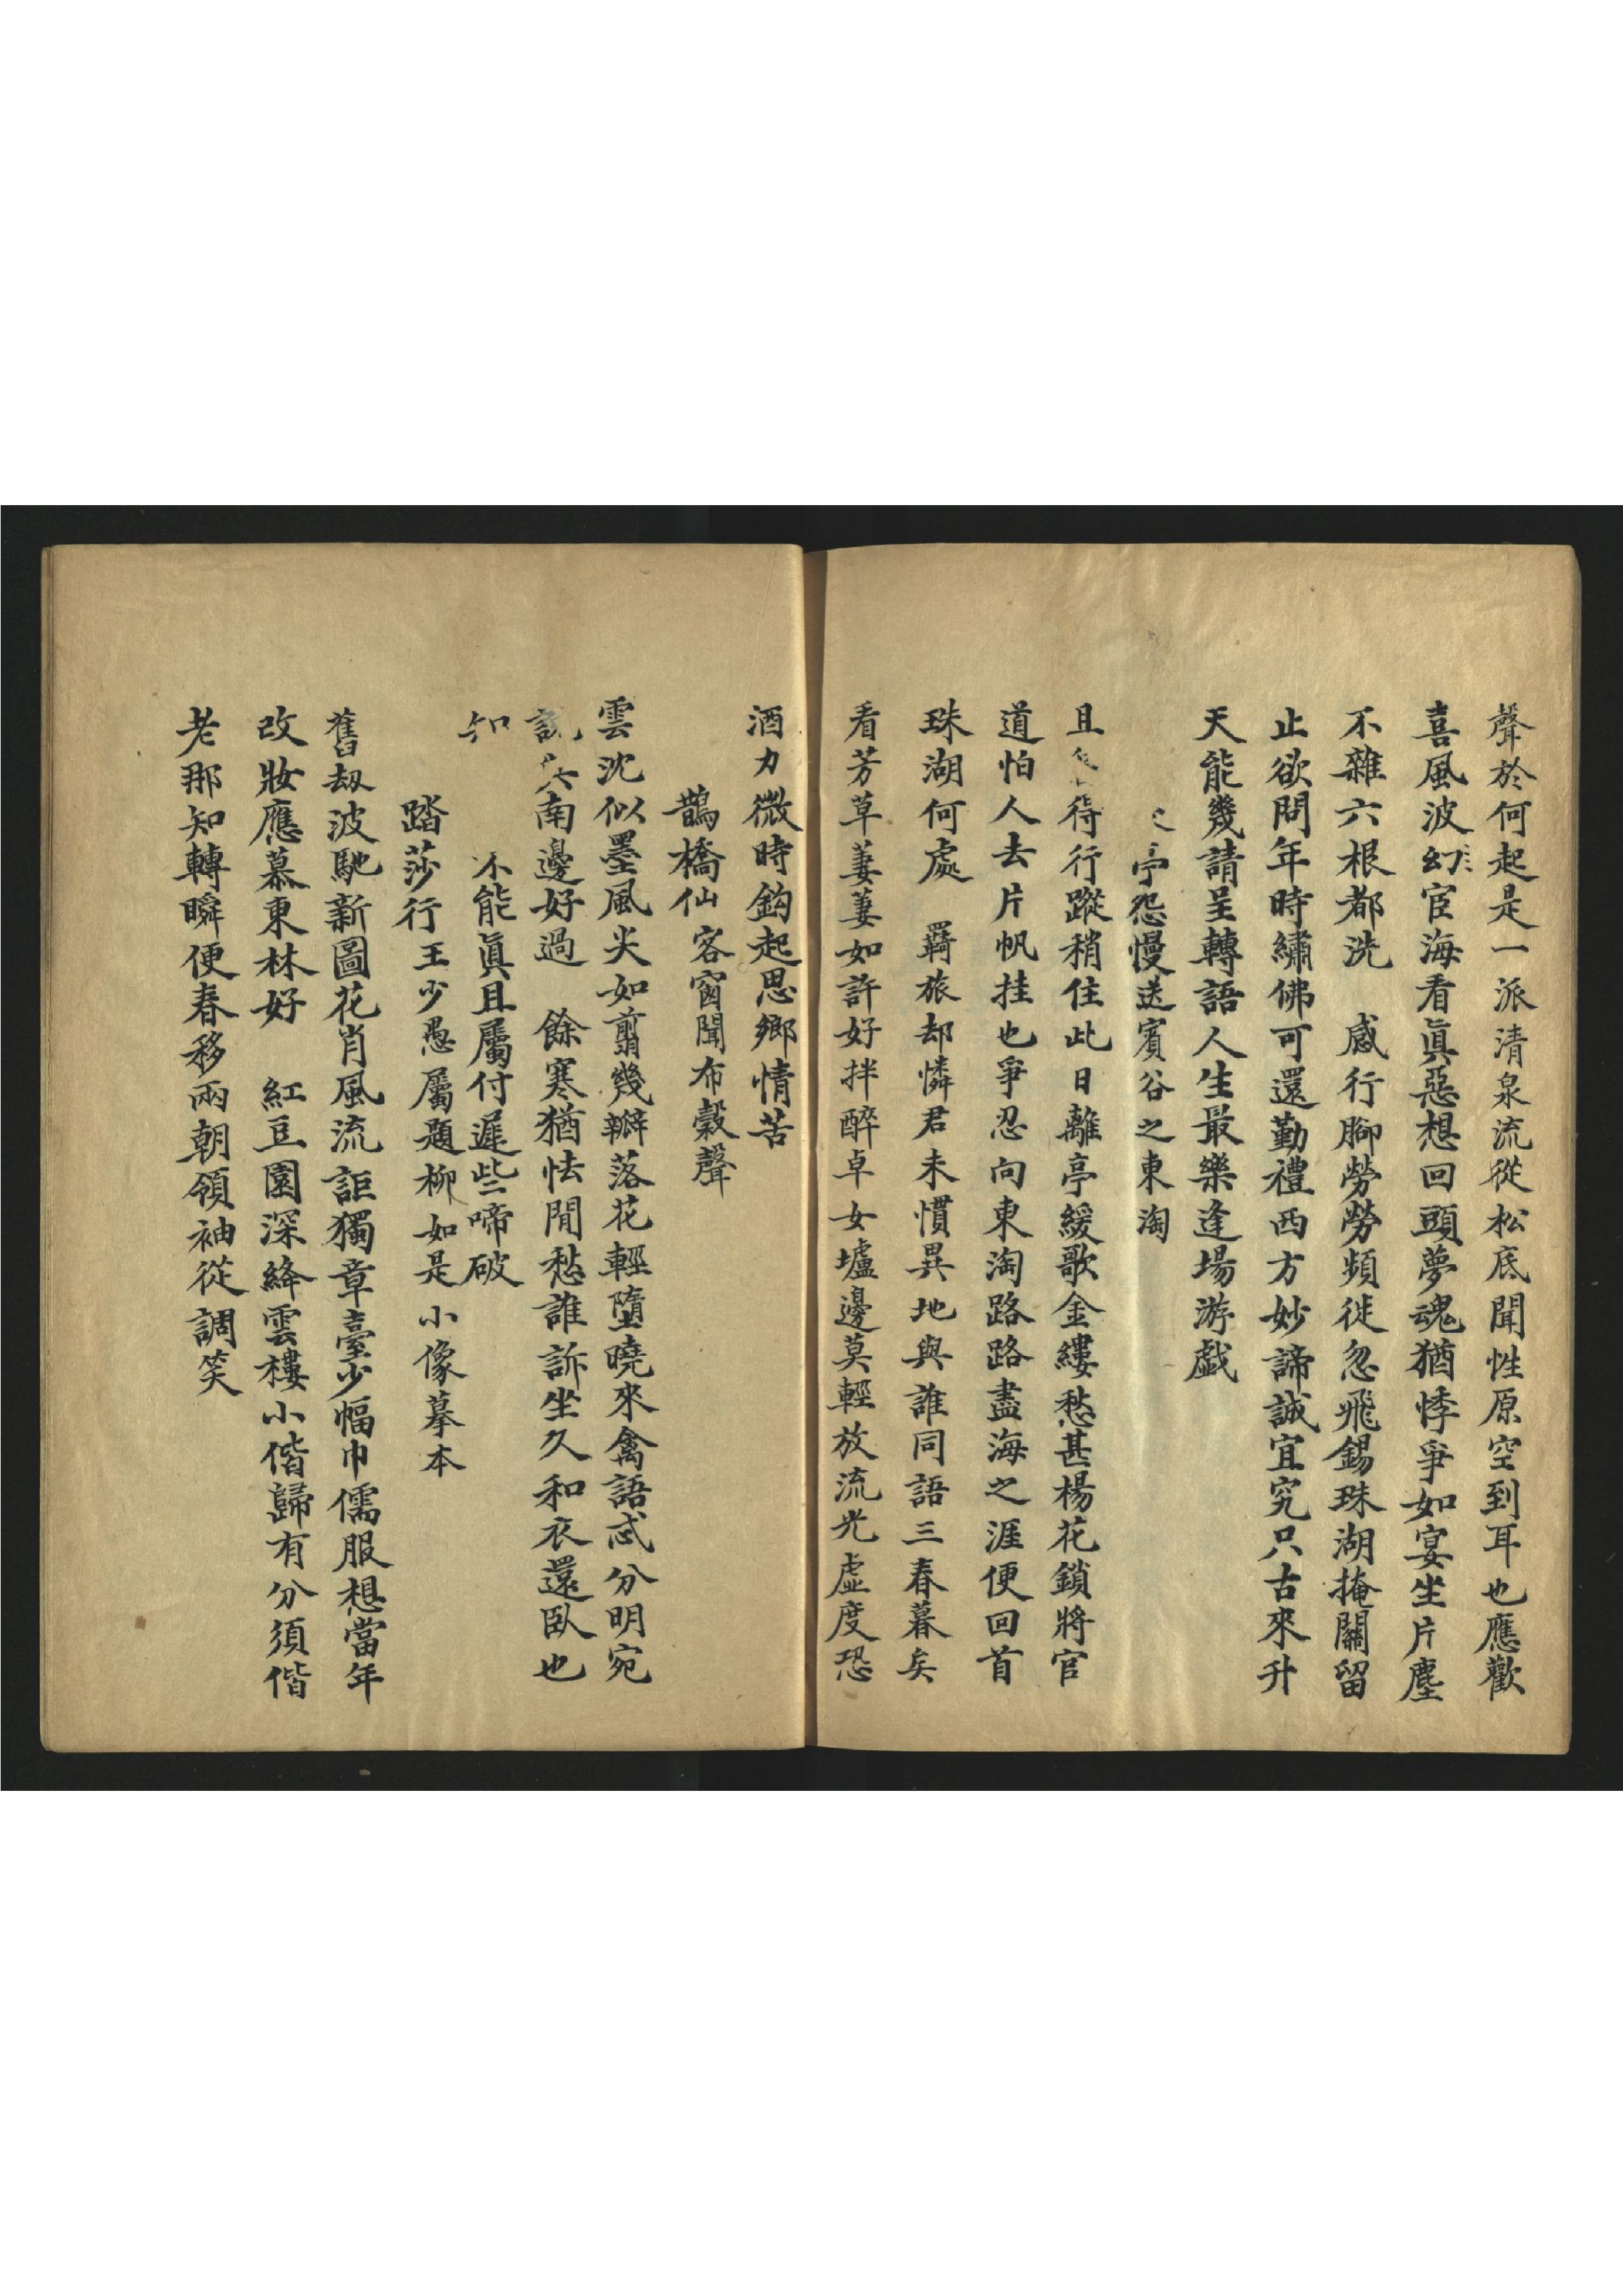 聲於何起是一派清泉流從松底聞性原空到耳也應歡
喜風波幻宦海看眞惡想回頭夢魂猶悸爭如宴坐片塵
不雜六根都洗　感行腳勞勞頻徙忽飛錫珠湖掩關留
止欲問年時繡佛可還勤禮西方妙諦誠宜究只古來升
天能幾請呈轉語人生最樂逢場游戲
亭怨慢送賓谷之東淘
且待行蹤稍住此日離亭緩歌金縷愁甚楊花鎖將官
道怕人去片帆挂也爭忍向東淘路路盡海之涯便回首
珠湖何處　羇旅却憐君未慣異地與誰同語三春暮矣
看芳草萋萋如許好拌醉卓女壚邊莫輕放流光虛度恐
酒力微時鈎起思鄉情苦
鵲橋仙客窗聞布穀聲
雲沈似墨風尖如翦幾瓣落花輕墮曉來禽語忒分明宛
說南邊好過　餘寒猶怯閒愁誰訴坐久和衣還臥也
知不能眞且屬付遲些啼破
踏莎行王少愚屬題柳如是小像摹本
舊刼波馳新圖花肖風流詎獨章臺少幅巾儒服想當年
改妝應慕東林好　紅豆園深絳雲樓小偕歸有分須偕
老那知轉瞬便春移兩朝領袖從調笑